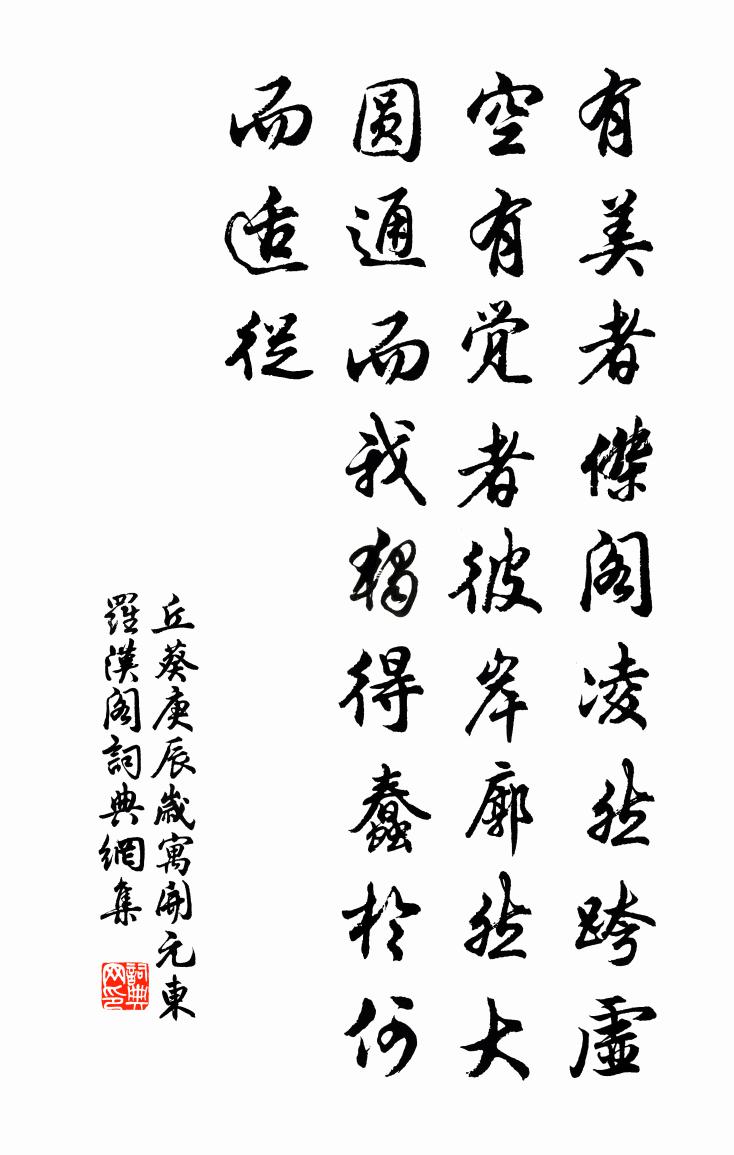 有美者傑阁凌然跨虛
空有觉者彼岸廓然大
圆通而我獨得蠢於何
而适從
丘葵庚辰歲寓開元東
羅漢阁詞典網集
詞典
网印